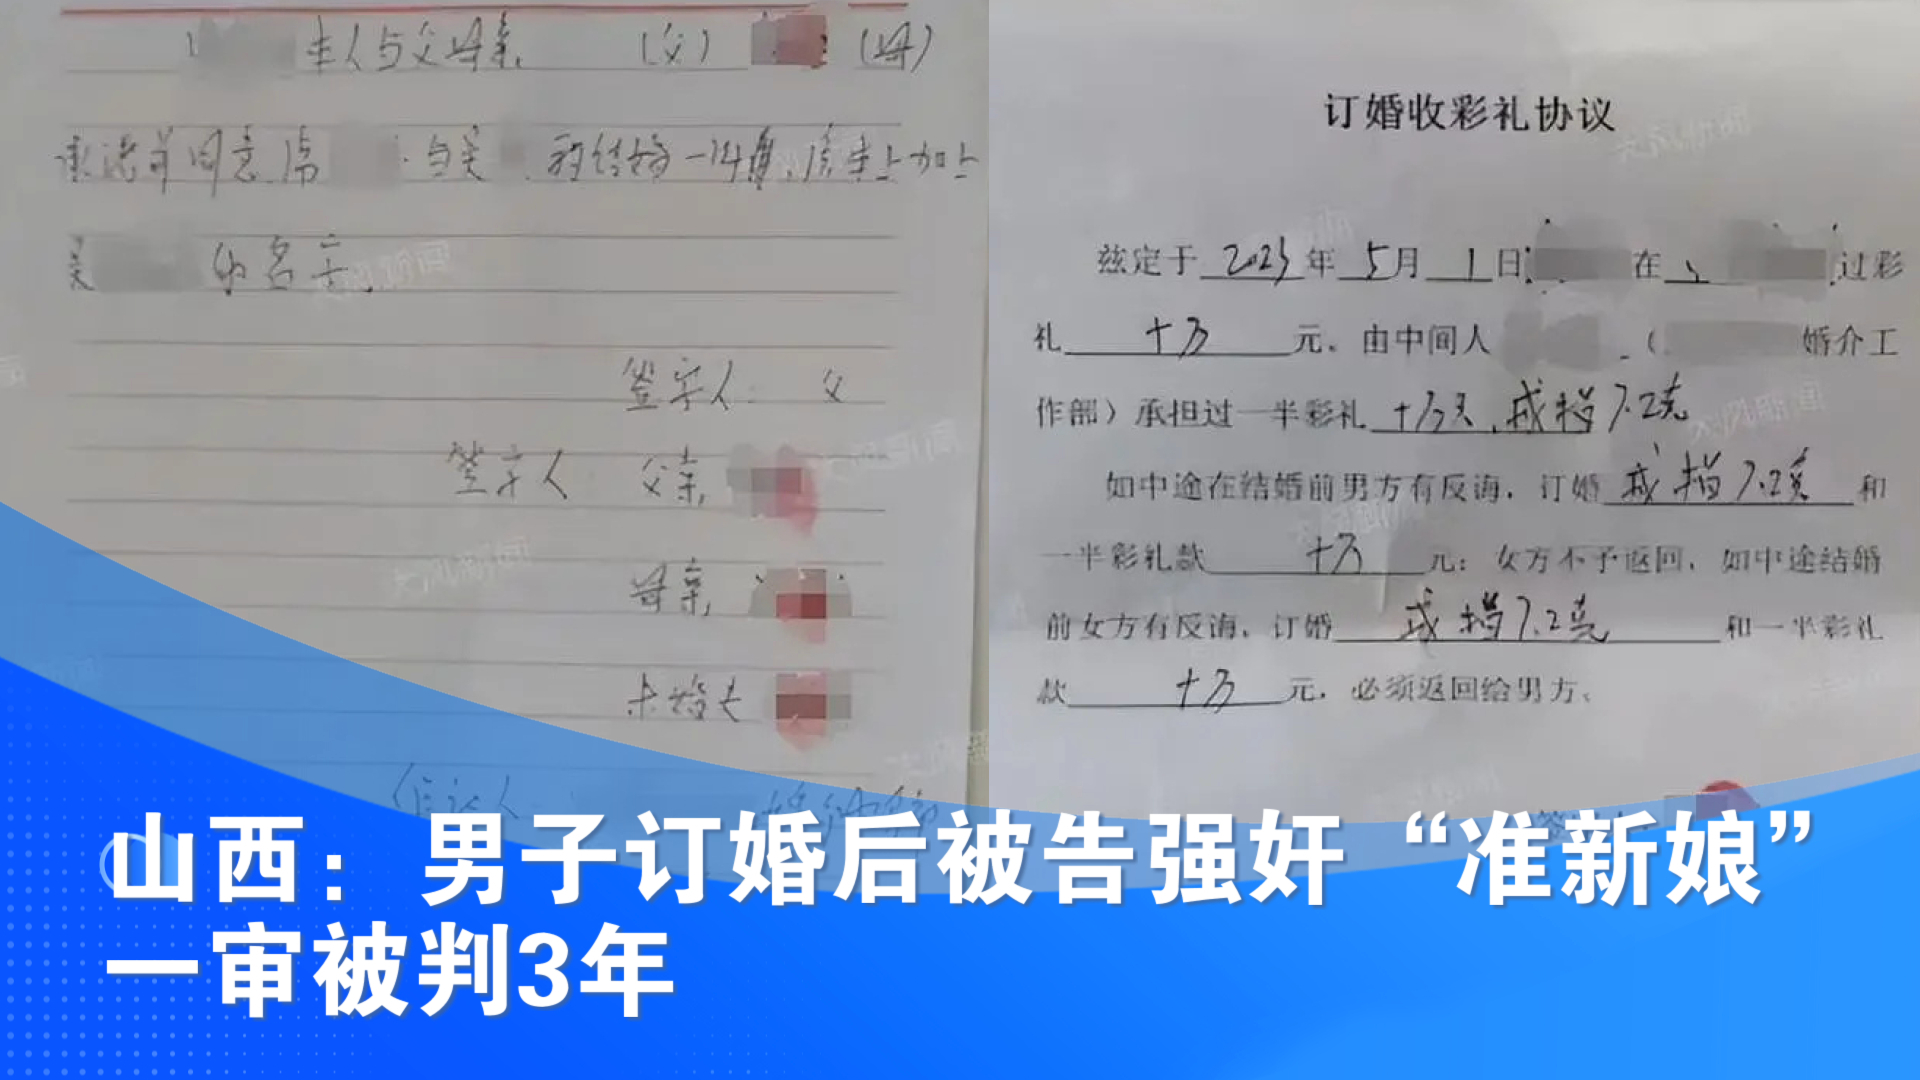 本人与父母亲 (父) (母)
承诺并同意席 与吴 我结婚一年后,房本上加上
吴 的名字
签字人: 父
签字人 父亲
母亲
未婚夫
订婚收彩礼协议
兹定于 2023 年 5 月 1 日 在 过彩
礼 十万 元。由中间人 ( 婚介工
作部)承担过一半彩礼 十万元,戒指7.2克
如中途在结婚前男方有反悔,订婚 戒指7.2克 和
一半彩礼款 十万 元:女方不予返回,如中途结婚
前女方有反悔,订婚 戒指7.2克 和一半彩礼
款 十万 元,必须返回给男方。
山西:男子订婚后被告强奸“准新娘”
一审被判3年